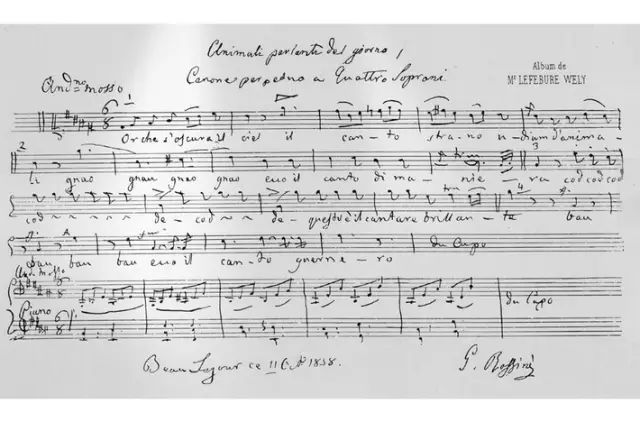 Animali parlanti del giorno
Album de
Mr LEFEBURE WELY
Canone perpetuo a Quattro Soprani
And.no mosso
1
Or che s'oscura il ciel il can-to stra-no u-diam d'anima-
2 3
li gnao gnau gnao gnao ecco il canto di ma-nie-ra cod cod cod
4
cod de-cod de-questo è il cantare brillan-te bau
bau bau bau ecco il can-to guerrie-ro
Da Capo
And. mosso
Piano
Da Capo
Beau Sejour ce 11 1858.
G. Rossini